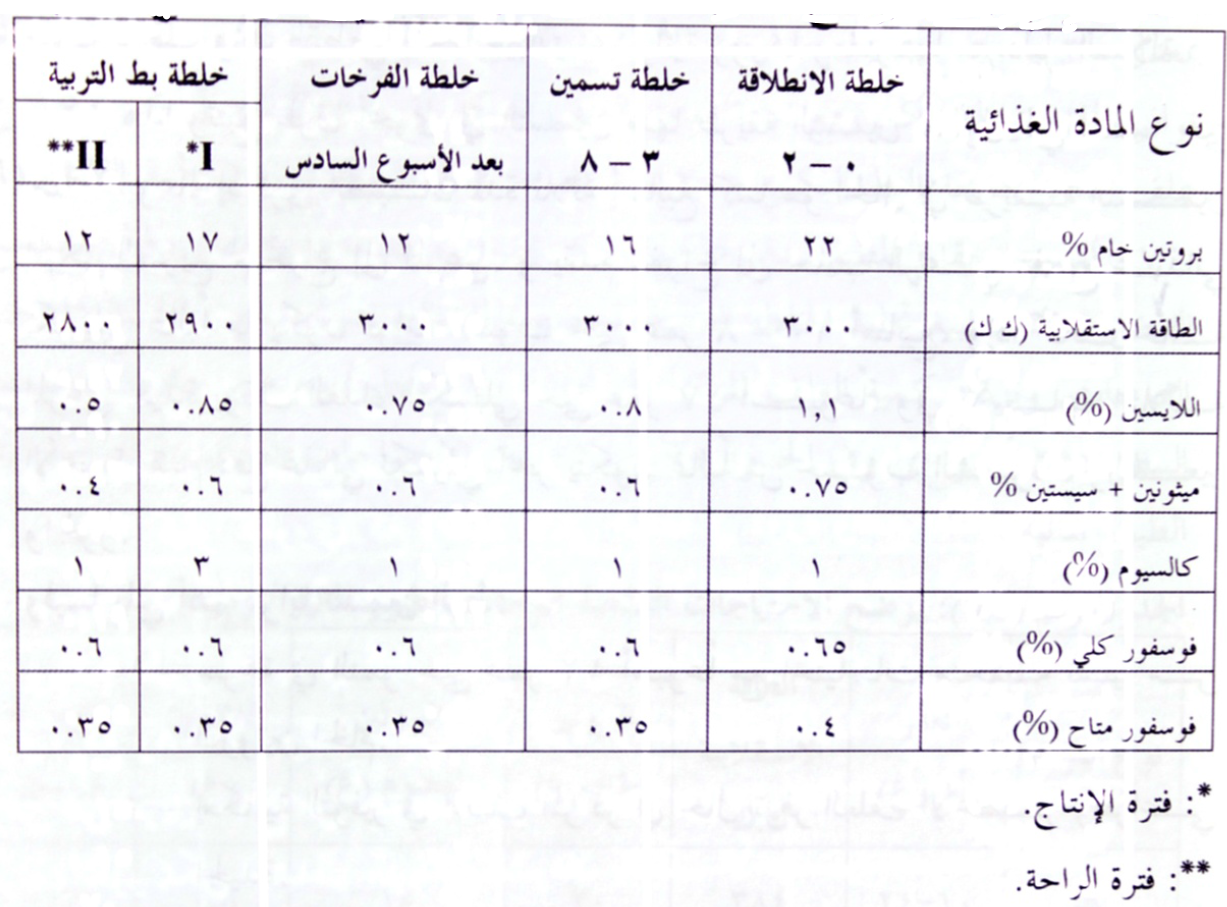 نوع المادة الغذائية خلطة الانطلاقة ٠ – ٢ خلطة تسمين ٣ – ٨ خلطة الفرخات بعد الأسبوع السادس خلطة بط التربية I* II**
بروتين خام % ٢٢ ١٦ ١٢ ١٧ ١٢
الطاقة الاستقلابية (ك ك) ٣٠٠٠ ٣٠٠٠ ٣٠٠٠ ٢٩٠٠ ٢٨٠٠
اللايسين (%) ١,١ ٠.٨ ٠.٧٥ ٠.٨٥ ٠.٥
ميثونين + سيستين % ٠.٧٥ ٠.٦ ٠.٦ ٠.٦ ٠.٤
كالسيوم (%) ١ ١ ١ ٣ ١
فوسفور كلي (%) ٠.٦٥ ٠.٦ ٠.٦ ٠.٦ ٠.٦
فوسفور متاح (%) ٠.٤ ٠.٣٥ ٠.٣٥ ٠.٣٥ ٠.٣٥
*: فترة الإنتاج.
**: فترة الراحة.